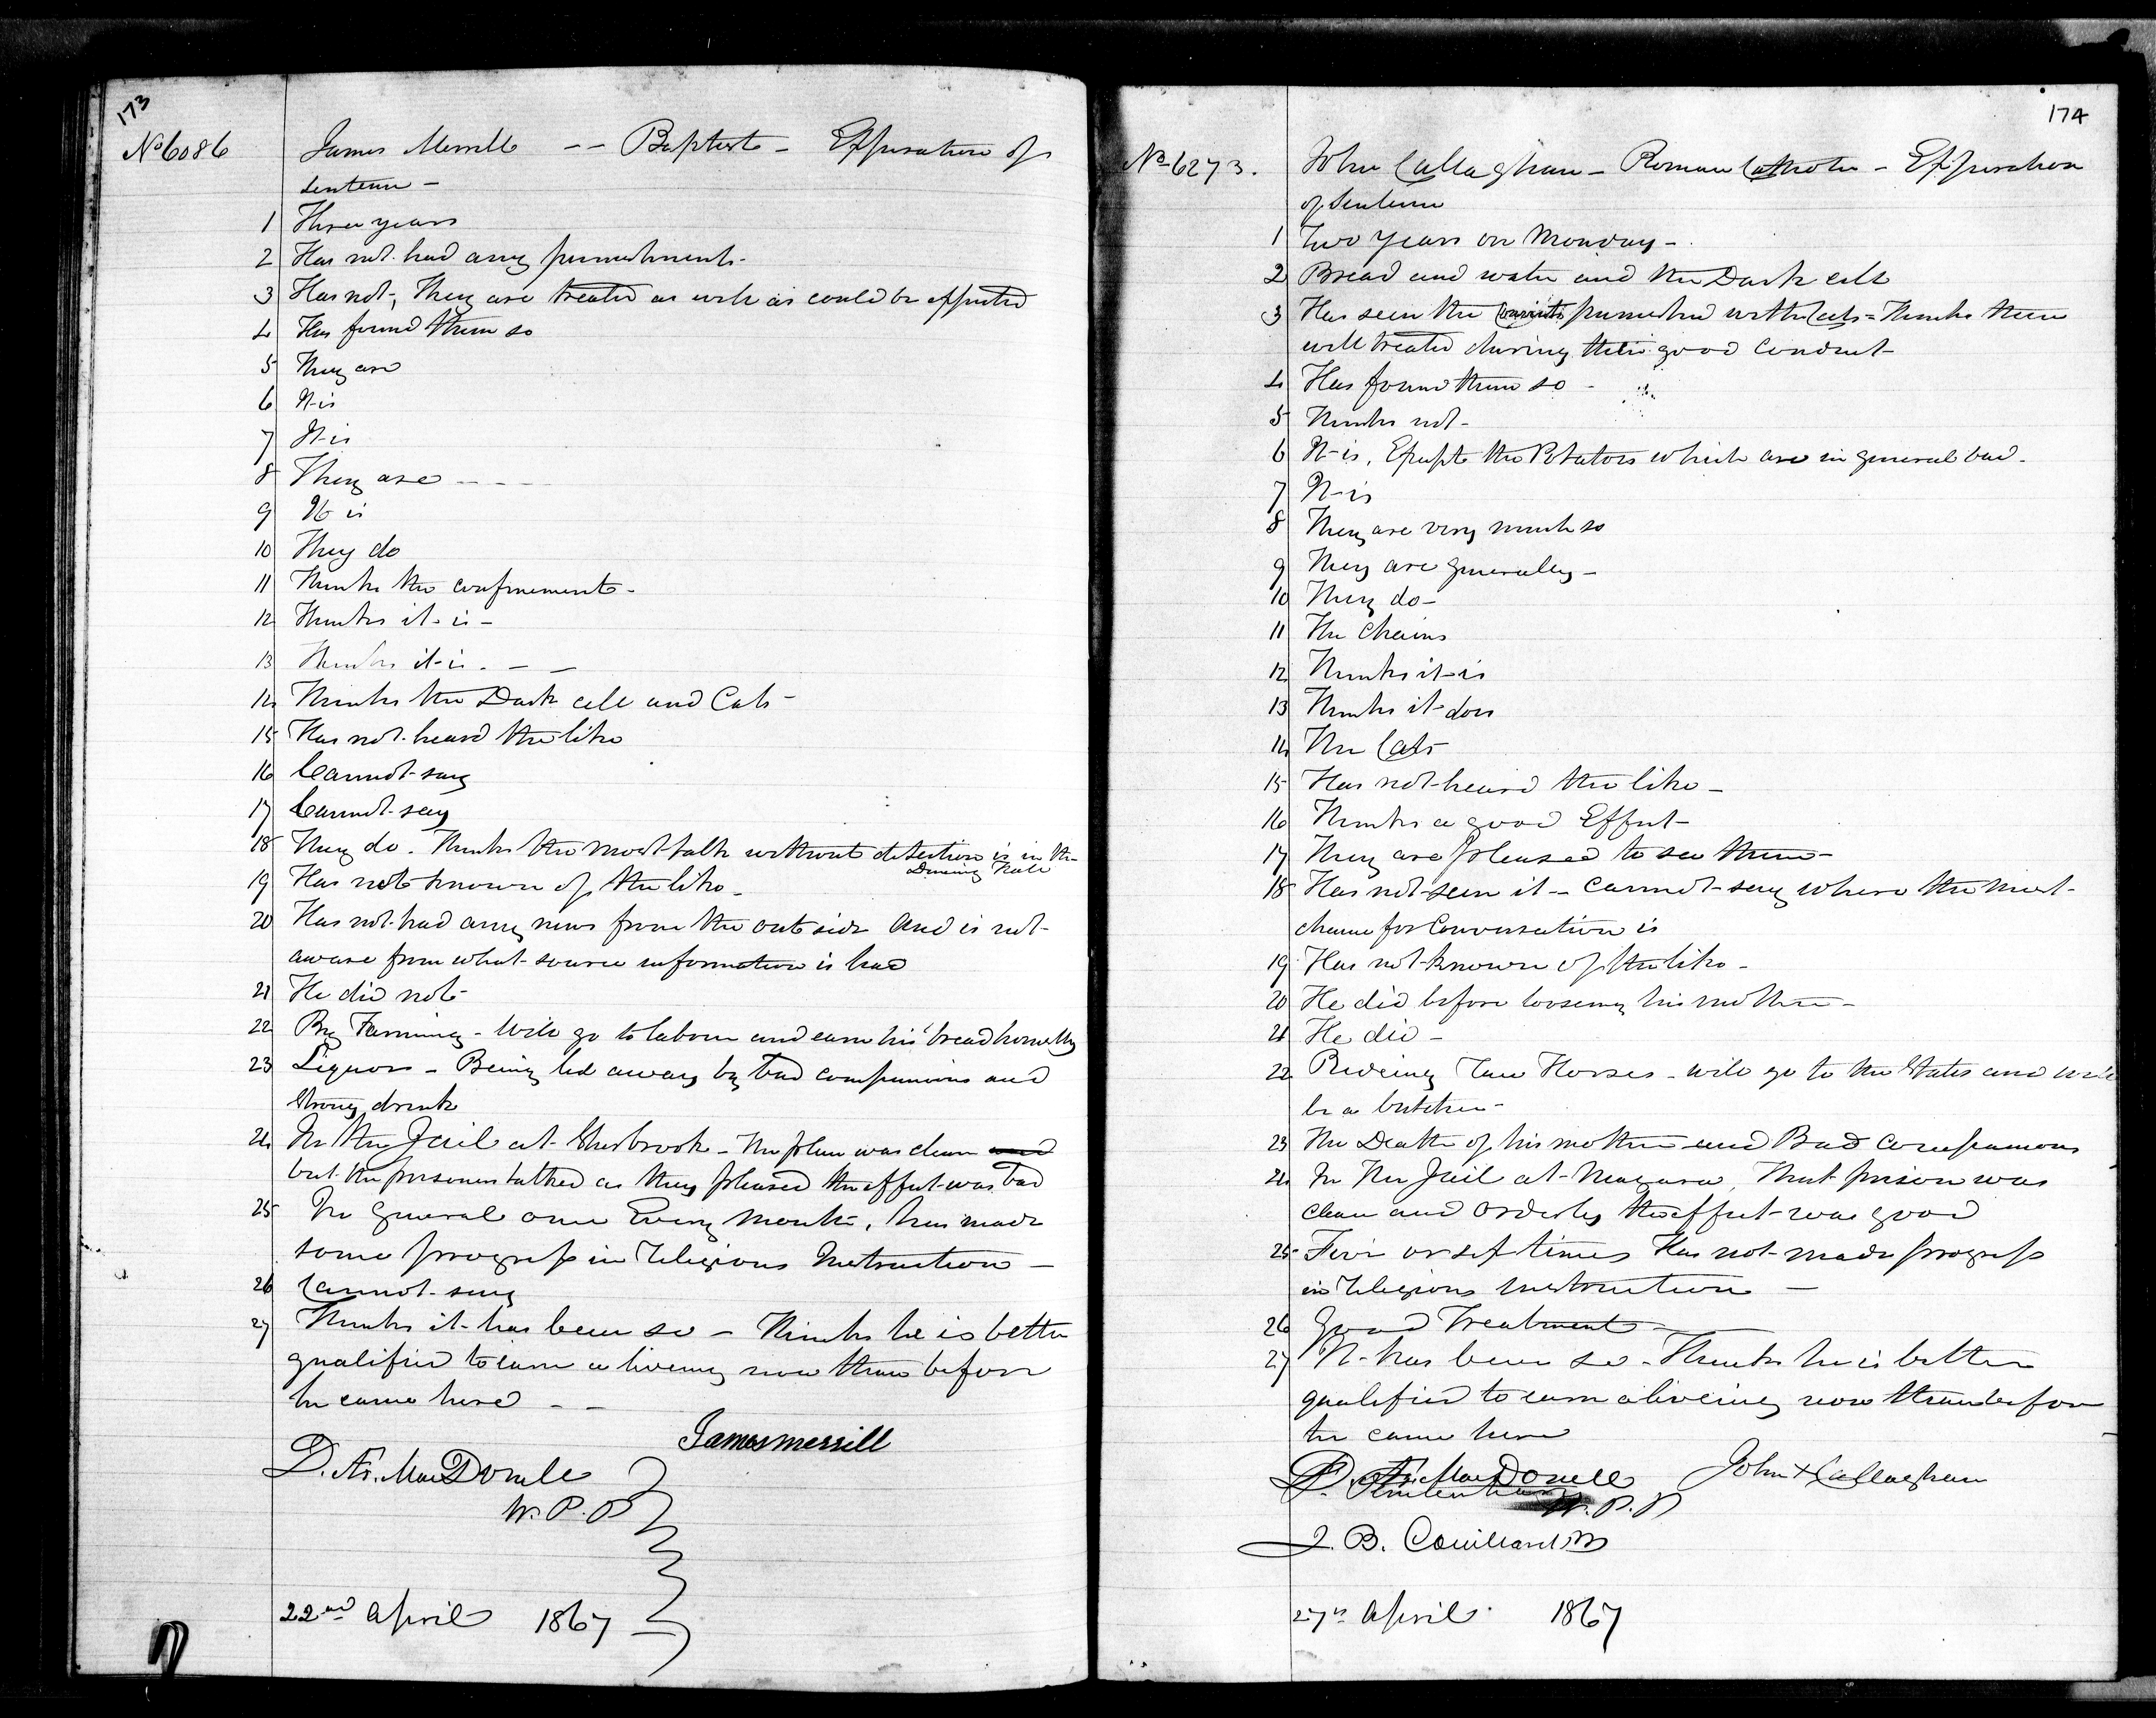 173
No 6086 James Merrill -- Baptist - Expiration of
sentence -
1 Three years
2 Has not had any punishment -
3 Has not, They are treated as well as could be expected
4 Has found them so
5 They are
6 It is
7 It is
8 They are - - - -
9 It is
10 They do
11 Thinks the confinement -
12 Thinks it is -
13 Thinks it is. - -
14 Thinks the Dark cell and Cats -
15 Has not heard the like
16 Cannot say
17 Cannot say
18 They do - Thinks the most talk without detection is in the
Dining Hall
19 Has not known of the like -
20 Has not had any news from the outside and is not
aware from what source information is had
21 He did not -
22 By Farming - Will go to labour and earn his bread honestly
23 Liquor - Being led away by bad companions and
strong drink
24 In the Jail at Sherbrook - The place was clean and
but the prisoners talked as they pleased the effect was bad
25 In General once Every Month, has made
some progress in Religious Instruction -
26 Cannot say
27 Thinks it has been so - Thinks he is better
qualified to earn a living now than before
he came here - -
James merrill
D. Æ. MacDonell
W. P. P
22nd April 1867
174
No 6273. John Callaghan - Roman Catholic - Expiration
of Sentence
1 Two years on Monday -
2 Bread and water and the Dark cell
3 Has seen the Convicts punished with Cats = Thinks them
well treated during their good conduct -
4 Has found them so -
5 Thinks not -
6 It is, Except the Potatoes which are in general bad -
7 It is
8 They are very much so
9 They are generally -
10 They do -
11 The Chains
12 Thinks it is
13 Thinks it does
14 The Cats -
15 Has not heard the like -
16 Thinks a good Effect -
17 They are pleased to see them -
18 Has not seen it - cannot say where the most
chance for Conversation is
19 Has not known of the like -
20 He did before loosing his mother -
21 He did -
22 Rideing Race Horses - will go to the States and will
be a butcher -
23 The Death of his mother and Bad Companions
24 In the Jail at Niagara, That prison was
clean and Orderly the effect was good
25 Five or six times Has not made progress
in Religious Instruction -
26 Good Treatment -
27 It has been so - Thinks he is better
qualified to earn a liveing now than before
he came here
D. Æ. MacDonell John X Callaghan
W. P. P
J. B. Couillard
27th April 1867